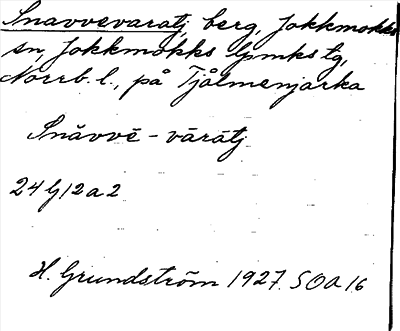 Snavvevaratj, berg, Jokkmokks
sn, Jokkmokks lpmks tg,
Norrb. l., på Tjålmenjarka
Snăvvē - vārātj
24 G 12 a 2
H. Grundström 1927. SOA 16